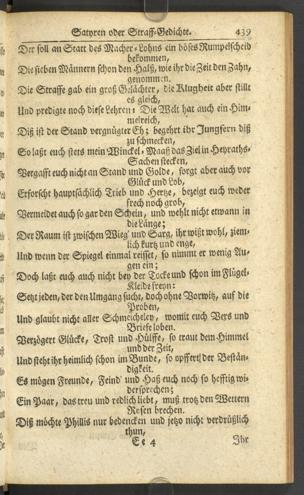 Satyren oder Straff-Gedichte. 439
Der soll an Statt des Macher-Lohns ein böses Rumpelscheid
bekommen,
Die sieben Männern schon den Halß, wie ihr die Zeit den Zahn,
genommen.
Die Straffe gab ein groß Gelächter, die Klugheit aber stillt
es gleich,
Und predigte noch diese Lehren: Die Welt hat auch ein Him-
melreich,
Diß ist der Stand vergnügter Eh; begehrt ihr Jungfern diß
zu schmecken,
So laßt euch stets mein Winckel-Maaß das Ziel in Heyraths-
Sachen stecken,
Vergafft euch nicht an Stand und Golde, forgt aber auch vor
Glück und Lob,
Erforscht hauptsächlich Trieb und Hertze, bezeigt euch weder
frech noch grob,
Vermeidet auch so gar den Schein, und wehlt nicht etwann in
die Länge;
Der Raum ist zwischen Wieg' und Sarg, ihr wißt wohl, ziem-
lich kurtz und enge,
Und wenn der Spiegel einmal reisset, so nimmt er wenig Au-
gen ein;
Doch laßt euch auch nicht bey der Tocke und schon im Flügel-
Kleide freyn:
Setzt jeden, der den Umgang sucht, doch ohne Vorwitz, auf die
Proben,
Und glaubt nicht aller Schmeicheley, womit euch Vers und
Briefe loben.
Verzögert Glücke, Trost und Hülffe, so traut dem Himmel
und der Zeit,
Und steht ihr heimlich schon im Bunde, so opffert der Bestän-
digkeit.
Es mögen Freunde, Feind und Haß euch noch so hefftig wi-
dersprechen;
Ein Paar, das treu und redlich liebt, muß trotz den Wettern
Rosen brechen.
Diß möchte Phillis nur bedencken und jetzo nicht verdrüßlich
thun,
Ee 4 Ihr